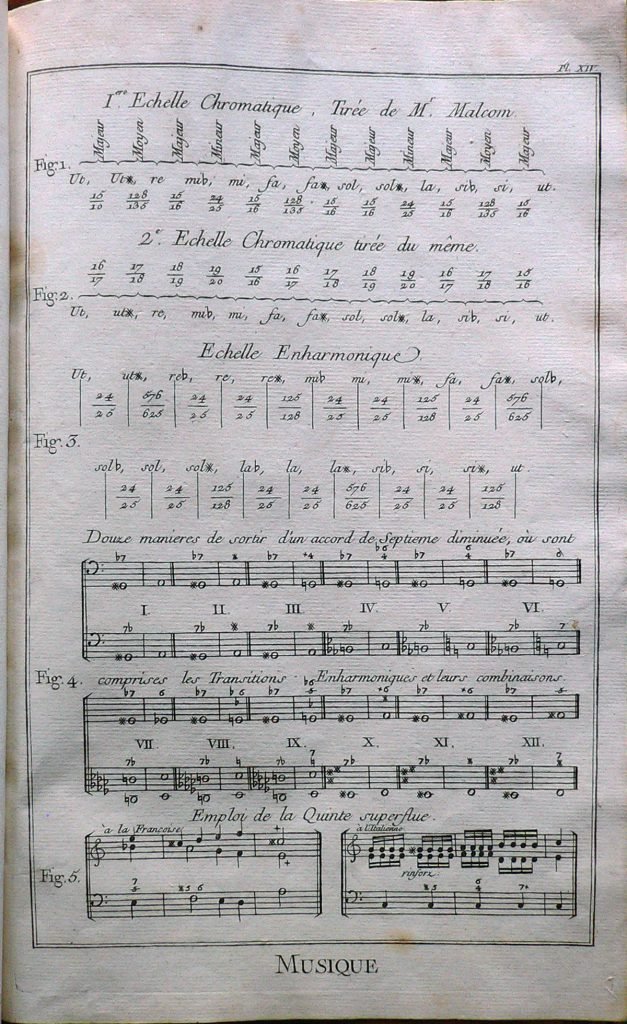 Pl. XIV
1ere Echelle Chromatique, Tirée de Mr. Malcom.
Majeur Moyen Majeur Mineur Majeur Moyen Majeur Majeur Mineur Majeur Moyen Majeur
Fig. 1.
Ut, Ut※, re mib, mi, fa, fa※, sol, sol※, la, sib, si, ut.
15/10 128/135 15/16 24/25 15/16 128/135 15/16 15/16 24/25 15/16 128/135 15/16
2e. Echelle Chromatique tirée du même.
16/17 17/18 18/19 19/20 15/16 16/17 17/18 18/19 19/20 16/17 17/18 15/16
Fig. 2.
Ut, ut※, re, mib, mi, fa, fa※, sol, sol※, la, sib, si, ut.
Echelle Enharmonique.
Ut, ut※, reb, re, re※, mib mi, mi※, fa, fa※, solb,
24/25 576/625 24/25 24/25 125/128 24/25 24/25 125/128 24/25 576/625
Fig. 3
solb, sol, sol※, lab, la, la※, sib, si, si※, ut.
24/25 24/25 125/128 24/25 24/25 576/625 24/25 24/25 125/128
Douze manieres de sortir d'un accord de Septieme diminuée, où sont
I. II. III. IV. V. VI.
Fig. 4. comprises les Transitions Enharmoniques et leurs combinaisons.
VII. VIII. IX. X. XI. XII.
Emploi de la Quinte superflue.
à la Françoise
à l'Italienne
Fig. 5.
rinforz.
7 ※5 6
※5 6 4 7+
MUSIQUE